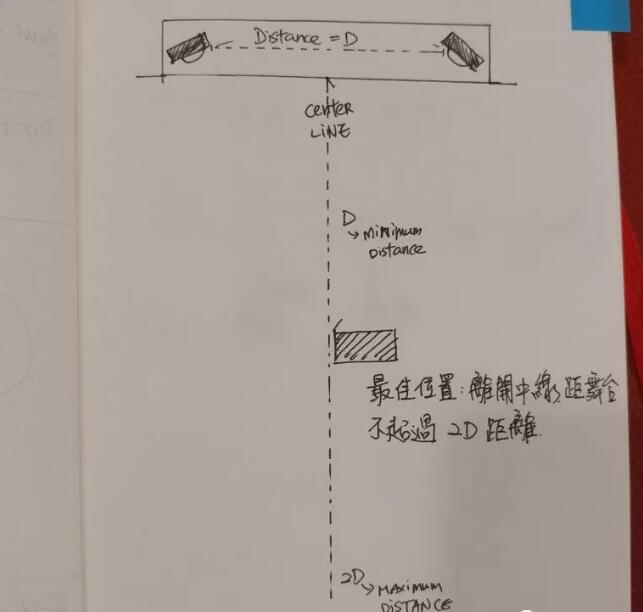 Distance = D
center
LINE
D
MiNimum
Distance
最佳位置:離開中線,距舞台
不超過 2D 距離.
2D
MAXIMUM
DiSTANCE